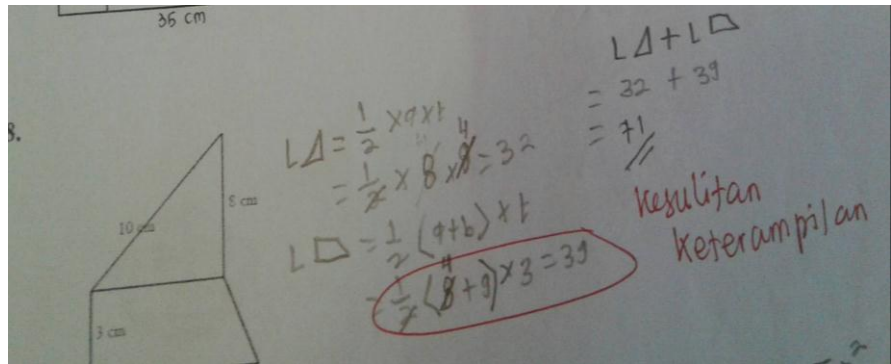 35 cm
8.
10 cm
8 cm
3 cm
L△ = 1/2 × a × t
= 1/2 × 8 × 8 = 32
4
L⏢ = 1/2 (a+b) × t
= 1/2 (8+9) × 3 = 39
4
L△ + L⏢
= 32 + 39
= 71
kesulitan
keterampilan